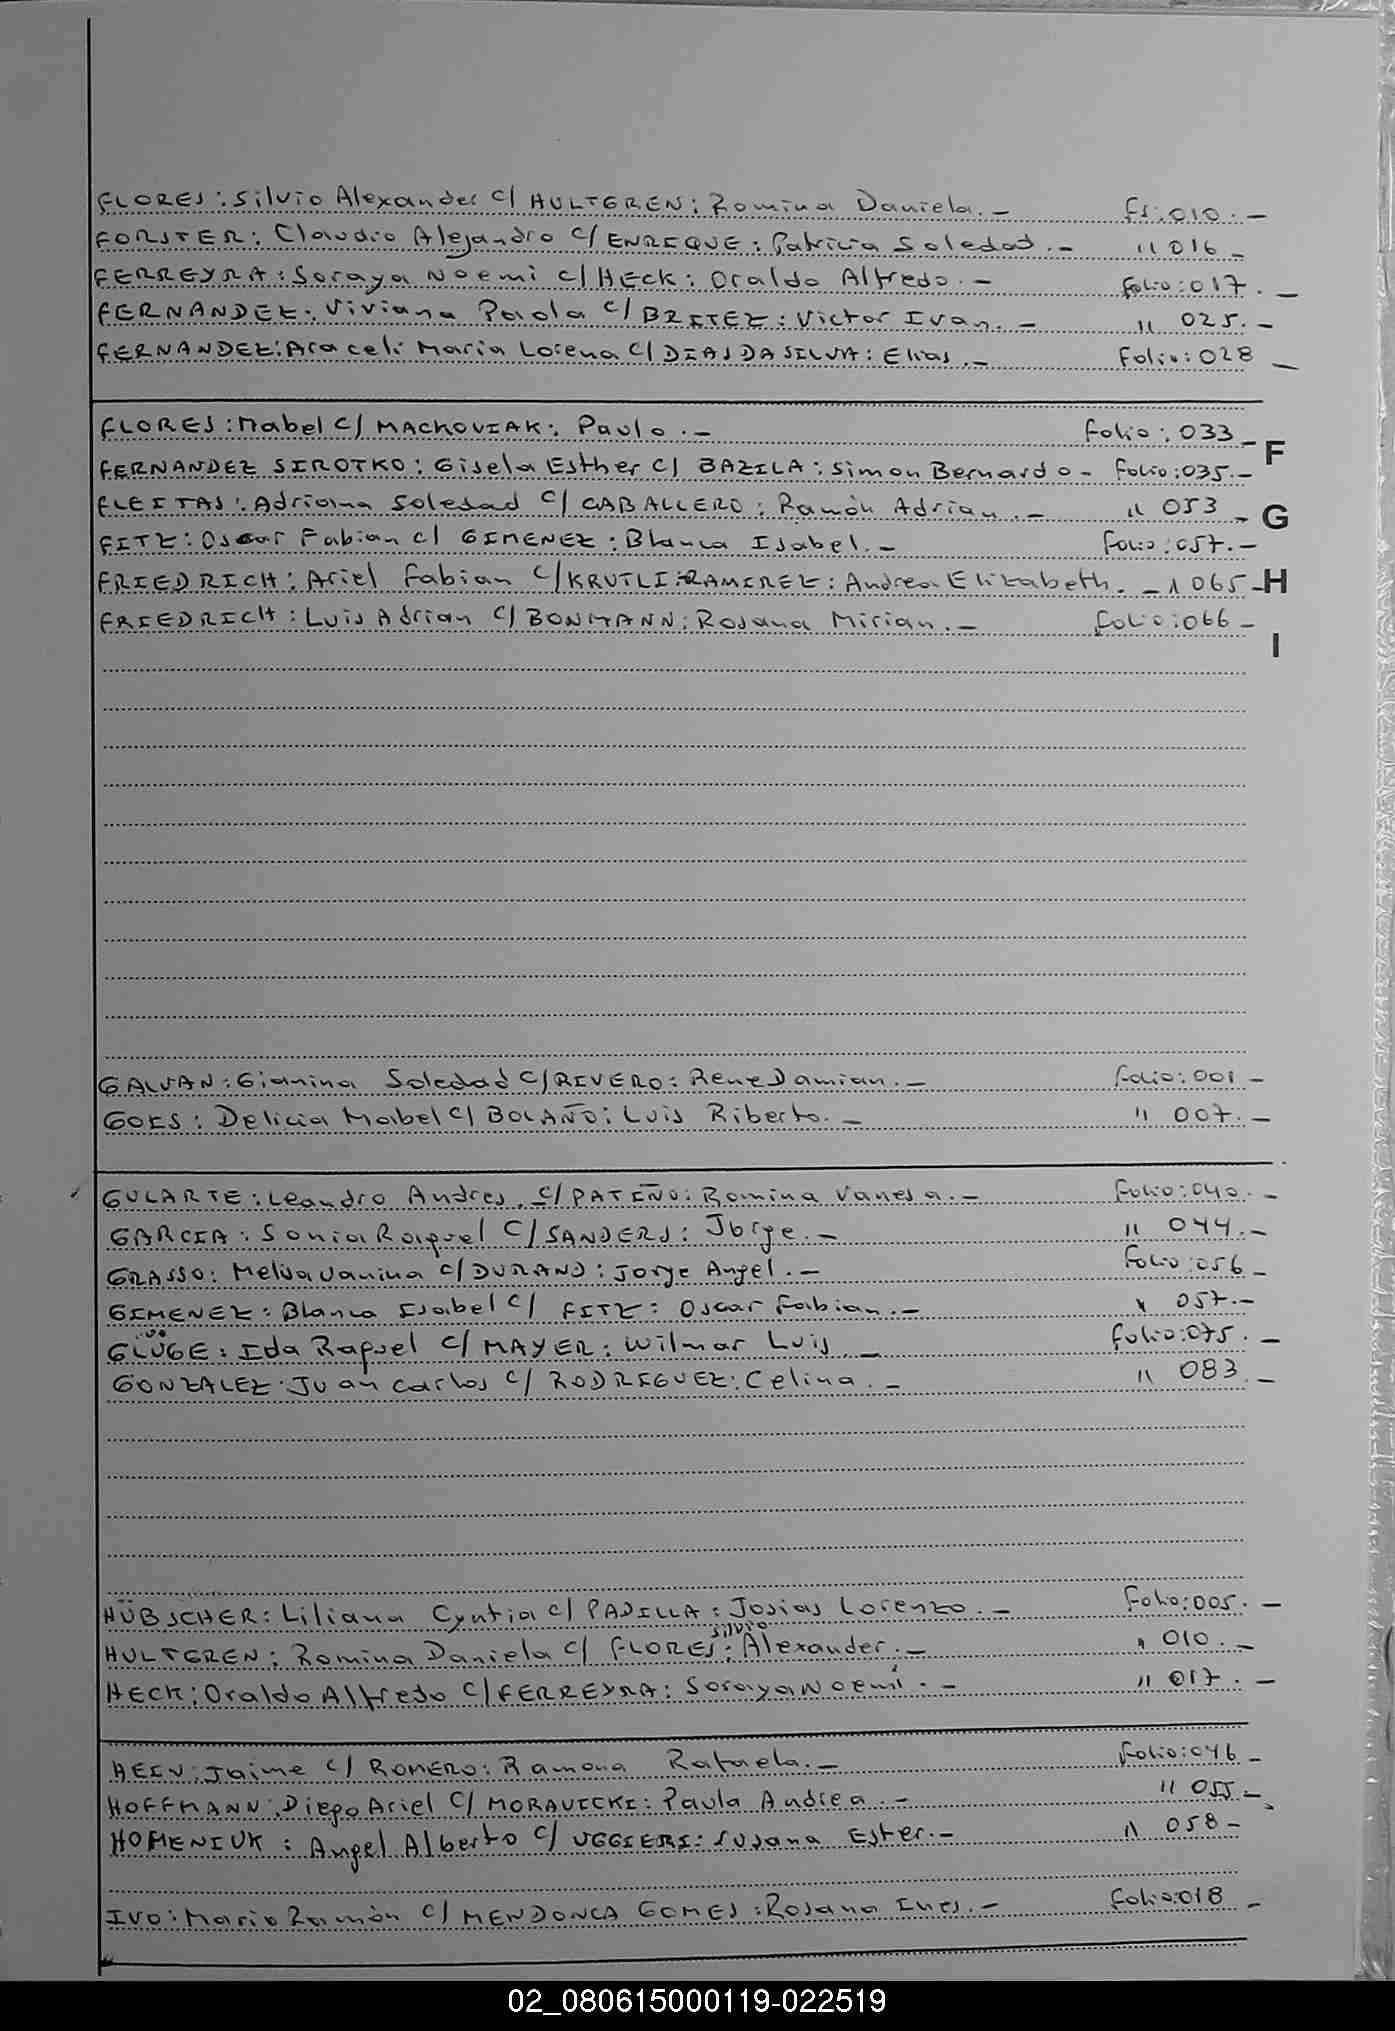 FLORES: Silvio Alexander c/ HULTGREN: Romina Daniela.- Fs:010.-
FORSTER: Claudio Alejandro c/ ENRIQUE: Patricia Soledad.- " 016_
FERREYRA: Soraya Noemi c/ HECK: Oraldo Alfredo.- folio:017._
FERNANDEZ: Viviana Paola c/ BRITEZ: Victor Ivan.- " 025.-
FERNANDEZ: Araceli Maria Lorena c/ DIAS DA SILVA: Elias.- Folio:028_
FLORES: Mabel c/ MACKOVIAK: Paulo.- folio:033_
F
FERNANDEZ SIROTKO: Gisela Esther c/ BAZILA: Simon Bernardo- folio:035.-
FLEITAS: Adriana Soledad c/ CABALLERO: Ramón Adrian.- " 053_
G
FITZ: Oscar Fabian c/ GIMENEZ: Blanca Isabel.- folio:057.-
FRIEDRICH: Ariel Fabian c/ KRUTLI RAMIREZ: Andrea Elizabeth.- " 065-
H
FRIEDRICH: Luis Adrian c/ BONMANN: Rosana Mirian.- folio:066-
I
GALVAN: Gianina Soledad c/ RIVERO: Rene Damian.- folio:001-
GOES: Delicia Mabel c/ BOLAÑO: Luis Riberto.- " 007.-
GULARTE: Leandro Andres, c/ PATIÑO: Romina Vanesa.- folio:040.-
GARCIA: Sonia Raquel c/ SANDERS: Jorge.- " 044.-
GRASSO: Melisa Janina c/ DURAND: Jorge Angel.- folio:056_
GIMENEZ: Blanca Isabel c/ FITZ: Oscar Fabian.- " 057.-
GLÜGE: Ida Raquel c/ MAYER: Wilmar Luis._ folio:075._
GONZALEZ: Juan Carlos c/ RODRIGUEZ: Celina.- " 083._
HÜBSCHER: Liliana Cyntia c/ PADILLA: Josias Lorenzo.- folio:005.-
HULTGREN: Romina Daniela c/ FLORES: Silvio Alexander.- " 010.-
HECK: Oraldo Alfredo c/ FERREYRA: Soraya Noemí.- " 017.-
HEIN: Jaime c/ ROMERO: Ramona Rafaela.- folio:046-
HOFFMANN: Diego Ariel c/ MORAVICKI: Paula Andrea.- " 055-
HOMENIUK: Angel Alberto c/ UGGIERI: Susana Ester.- " 058-
IVO: Mario Ramón c/ MENDONCA GOMES: Rosana Ines.- folio:018-
02_080615000119-022519